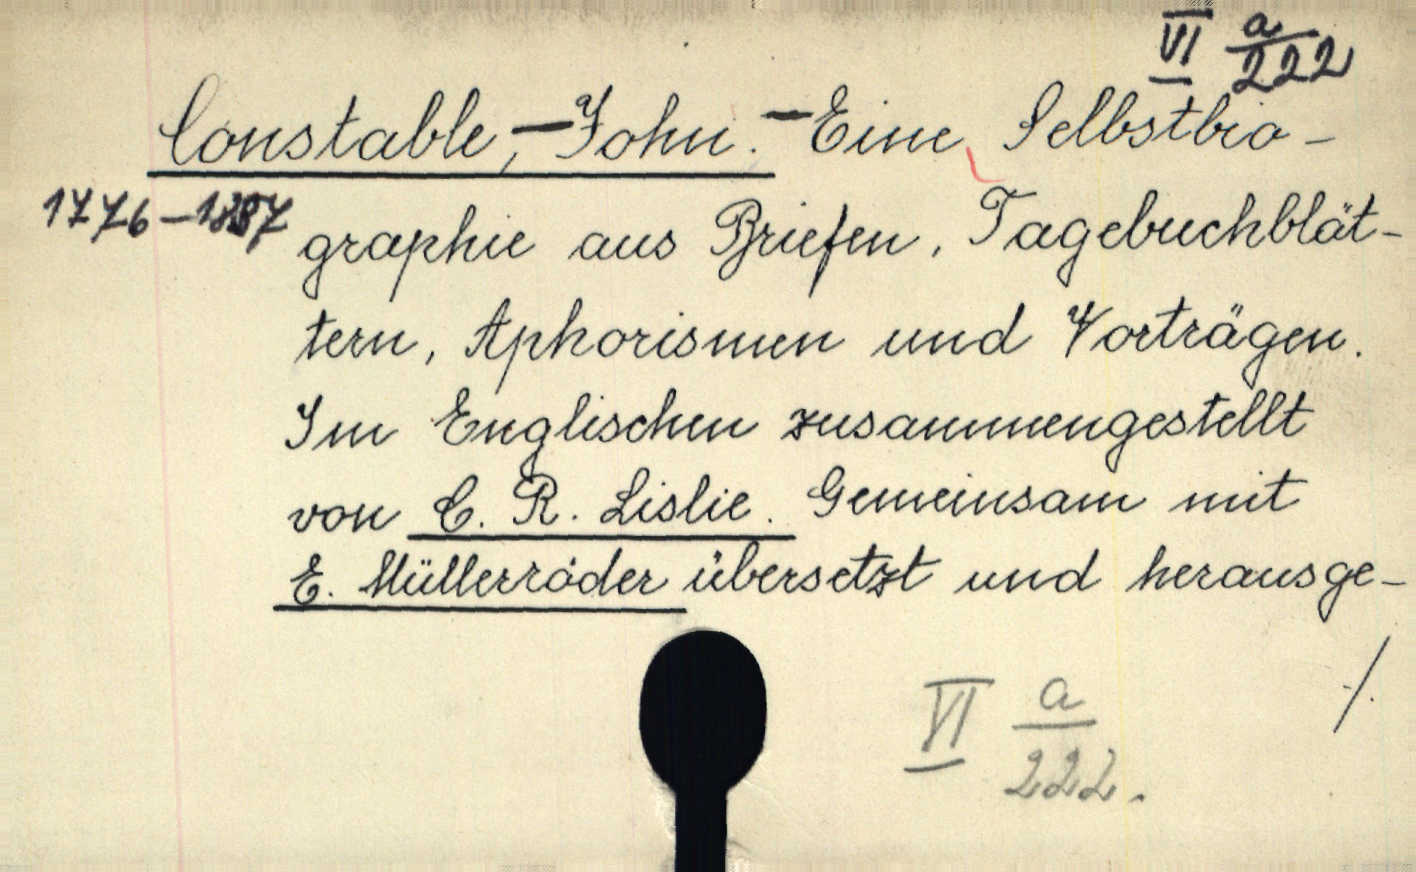 VI a/222
Constable, - John. - Eine Selbstbio-
1776-1837
graphie aus Briefen, Tagebuchblät-
tern, Aphorismen und Vorträgen.
Im Englischen zusammengestellt
von C. R. Lislie. Gemeinsam mit
E. Müllerröder übersetzt und herausge-
./.
VI a/222.